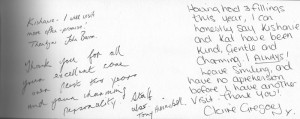 Kishane. I will visit
more often
Thank you for all
your excellent care
over this years
and your charming
personality
Tony
Having had 3 fillings
this year, I can
honestly say Kishane
and Kat have been
Kind, Gentle and
Charming. I ALWAYS!
Leave Smiling, and
have no apprehension
before I have another
Visit. Thank You!
Claire Gregory